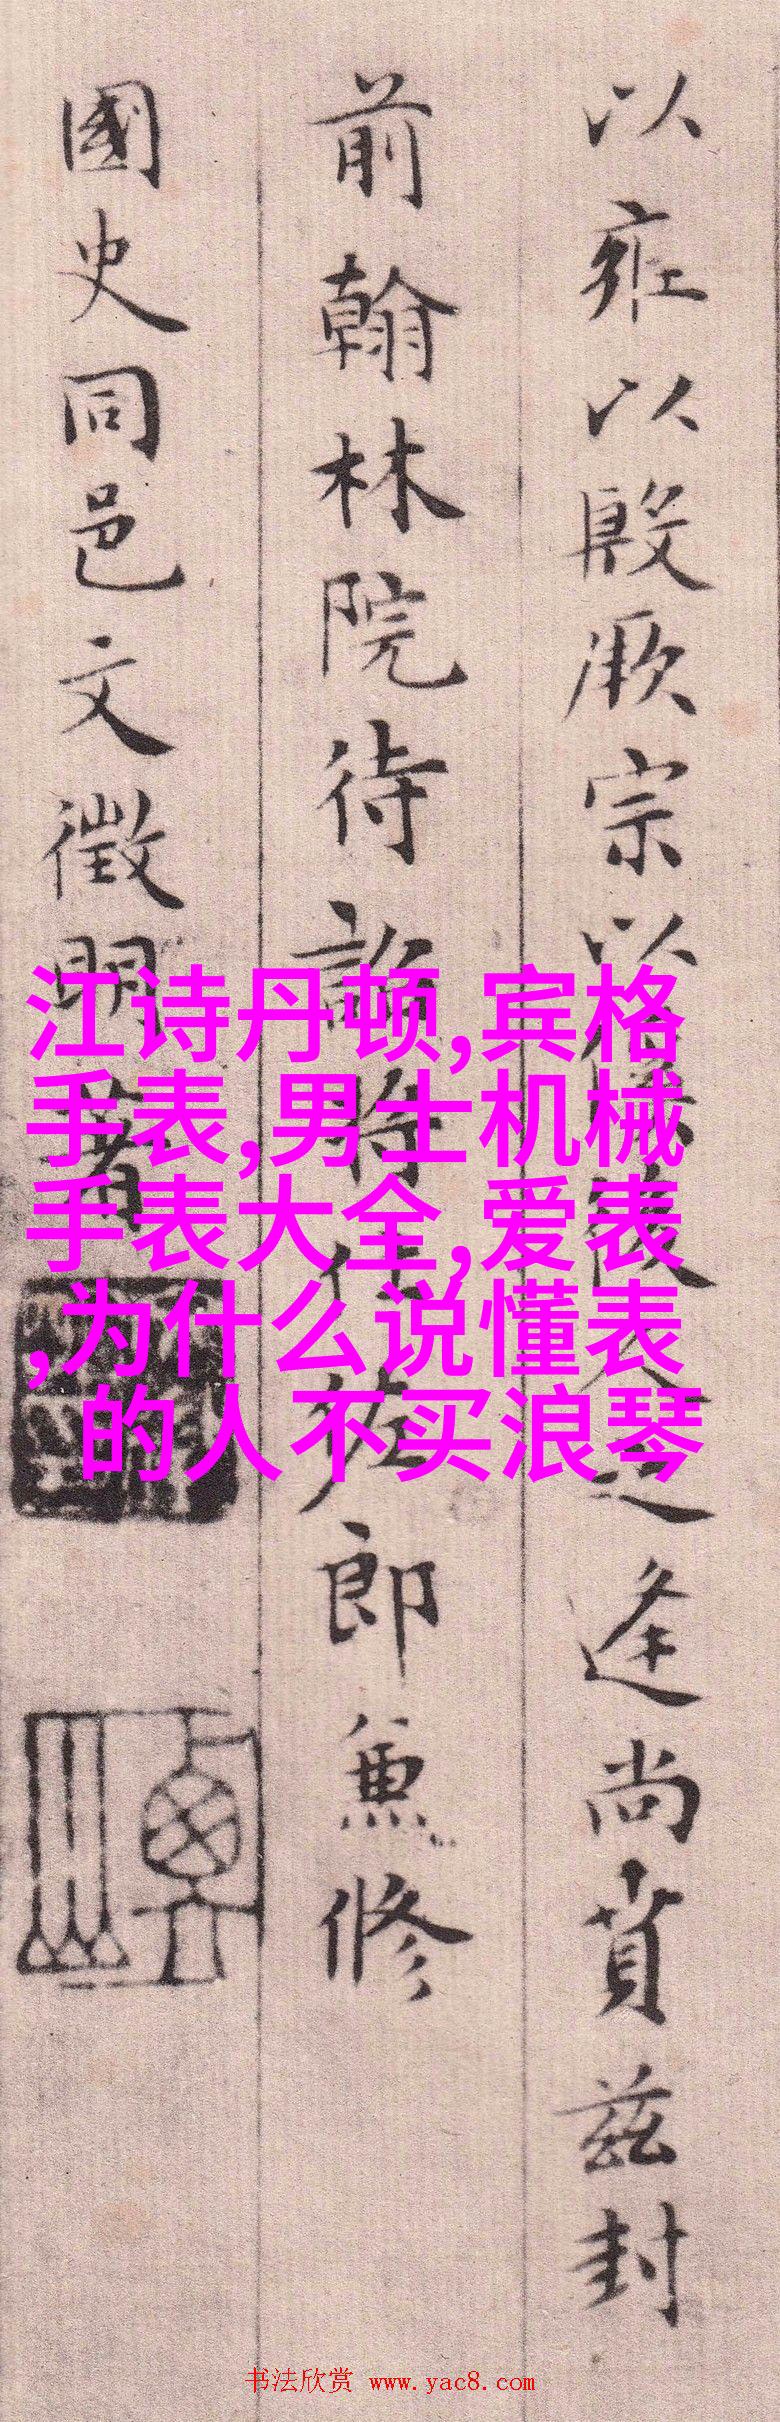 以雍以殷厥宗以
逢尚賁茲封
前翰林院待詔將仕佐郎兼修
國史同邑文徵明著
江诗丹顿,宾格
手表,男士机械
手表大全,爱表
,为什么说懂表
的人不买浪琴
书法欣赏 www.yac8.com